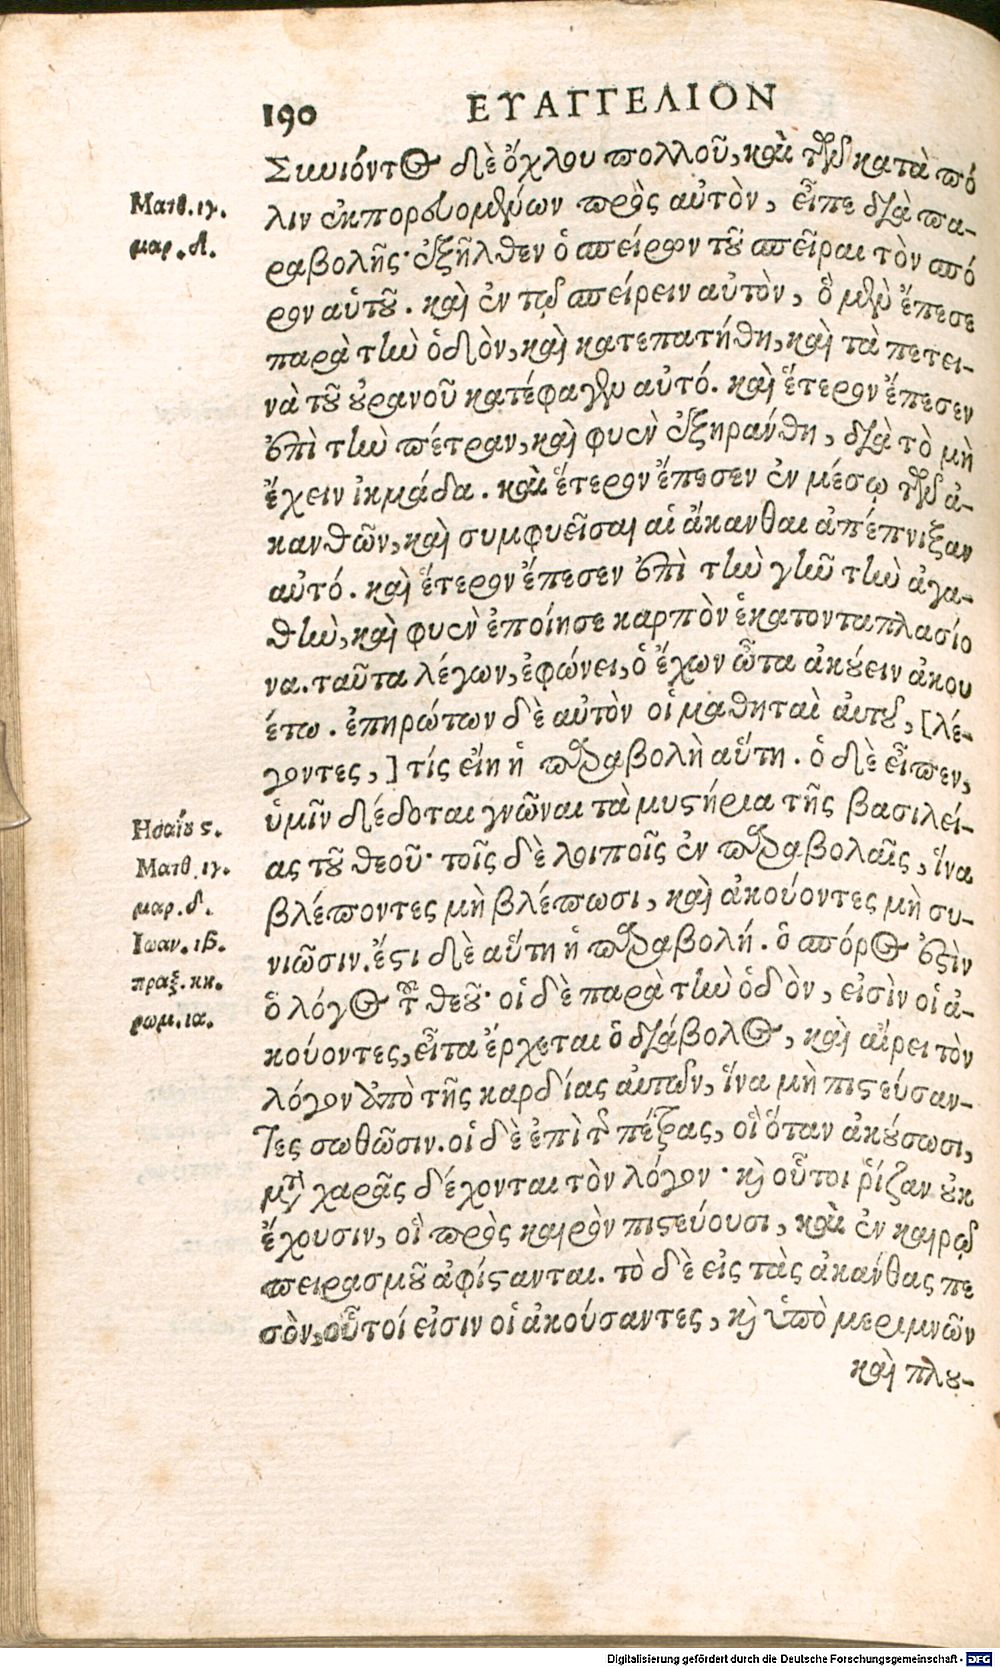 190 ΕΥΑΓΓΕΛΙΟΝ
Σιωιόντος δὲ ὄχλου πολλοῦ, καὶ τῶν κατὰ πό
Ματθ. ιγ.
λιν ἐκπορευομένων πρὸς αὐτὸν, εἶπε διὰ πα-
μαρ. δ.
ραβολῆς· ἐξῆλθεν ὁ σπείρων τοῦ σπεῖραι τὸν σπό
ρον αὑτοῦ. καὶ ἐν τῷ σπείρειν αὐτὸν, ὃ μὲν ἔπεσε
παρὰ τὴν ὁδὸν, καὶ κατεπατήθη, καὶ τὰ πετει-
νὰ τοῦ οὐρανοῦ κατέφαγεν αὐτό. καὶ ἕτερον ἔπεσεν
ἐπὶ τὴν πέτραν, καὶ φυὲν ἐξηράνθη, διὰ τὸ μὴ
ἔχειν ἰκμάδα. καὶ ἕτερον ἔπεσεν ἐν μέσῳ τῶν ἀ-
κανθῶν, καὶ συμφυεῖσαι αἱ ἄκανθαι ἀπέπνιξαν
αὐτό. καὶ ἕτερον ἔπεσεν ἐπὶ τὴν γῆν τὴν ἀγα-
θὴν, καὶ φυὲν ἐποίησε καρπὸν ἑκατονταπλασίο
να. ταῦτα λέγων, ἐφώνει, ὁ ἔχων ὦτα ἀκούειν ἀκου
έτω. ἐπηρώτων δὲ αὐτὸν οἱ μαθηταὶ αὐτοῦ, [λέ-
γοντες,] τίς εἴη ἡ παραβολὴ αὕτη. ὁ δὲ εἶπεν,
ὑμῖν δέδοται γνῶναι τὰ μυστήρια τῆς βασιλεί-
Ησαΐου ς.
ας τοῦ θεοῦ· τοῖς δὲ λοιποῖς ἐν παραβολαῖς, ἵνα
Ματθ. ιγ.
βλέποντες μὴ βλέπωσι, καὶ ἀκούοντες μὴ συ-
μαρ. δ.
νιῶσιν. ἔστι δὲ αὕτη ἡ παραβολή. ὁ σπόρος ἐστὶν
Ιωαν. ιβ.
ὁ λόγος τοῦ θεοῦ· οἱ δὲ παρὰ τὴν ὁδὸν, εἰσὶν οἱ ἀ-
πραξ. κκ.
κούοντες, εἶτα ἔρχεται ὁ διάβολος, καὶ αἴρει τὸν
ρωμ. ια.
λόγον ἀπὸ τῆς καρδίας αὐτῶν, ἵνα μὴ πιστεύσαν-
τες σωθῶσιν. οἱ δὲ ἐπὶ τῆς πέτρας, οἳ ὅταν ἀκούσωσι,
μετὰ χαρᾶς δέχονται τὸν λόγον· καὶ οὗτοι ῥίζαν οὐκ
ἔχουσιν, οἳ πρὸς καιρὸν πιστεύουσι, καὶ ἐν καιρῷ
πειρασμοῦ ἀφίστανται. τὸ δὲ εἰς τὰς ἀκάνθας πε
σὸν, οὗτοί εἰσιν οἱ ἀκούσαντες, καὶ ὑπὸ μεριμνῶν
καὶ πλου-
Digitalisierung gefördert durch die Deutsche Forschungsgemeinschaft - DFG